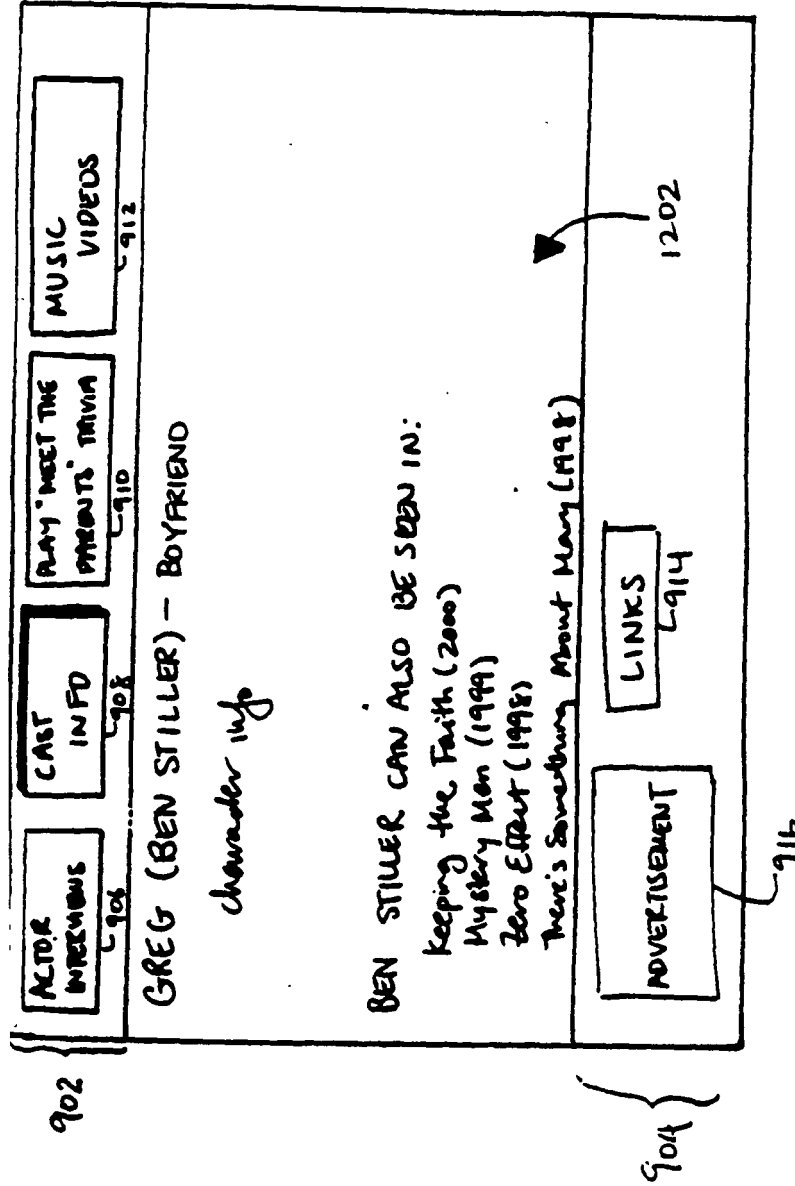 902
ACTOR
INTERVIEWS
906
CAST
INFO
908
PLAY "MEET THE
PARENTS" TRIVIA
910
MUSIC
VIDEOS
912
GREG (BEN STILLER) — BOYFRIEND
character info
BEN STILLER CAN ALSO BE SEEN IN:
Keeping the Faith (2000)
Mystery Men (1999)
Zero Effect (1998)
There's Something About Mary (1998)
1202
904
ADVERTISEMENT
916
LINKS
914